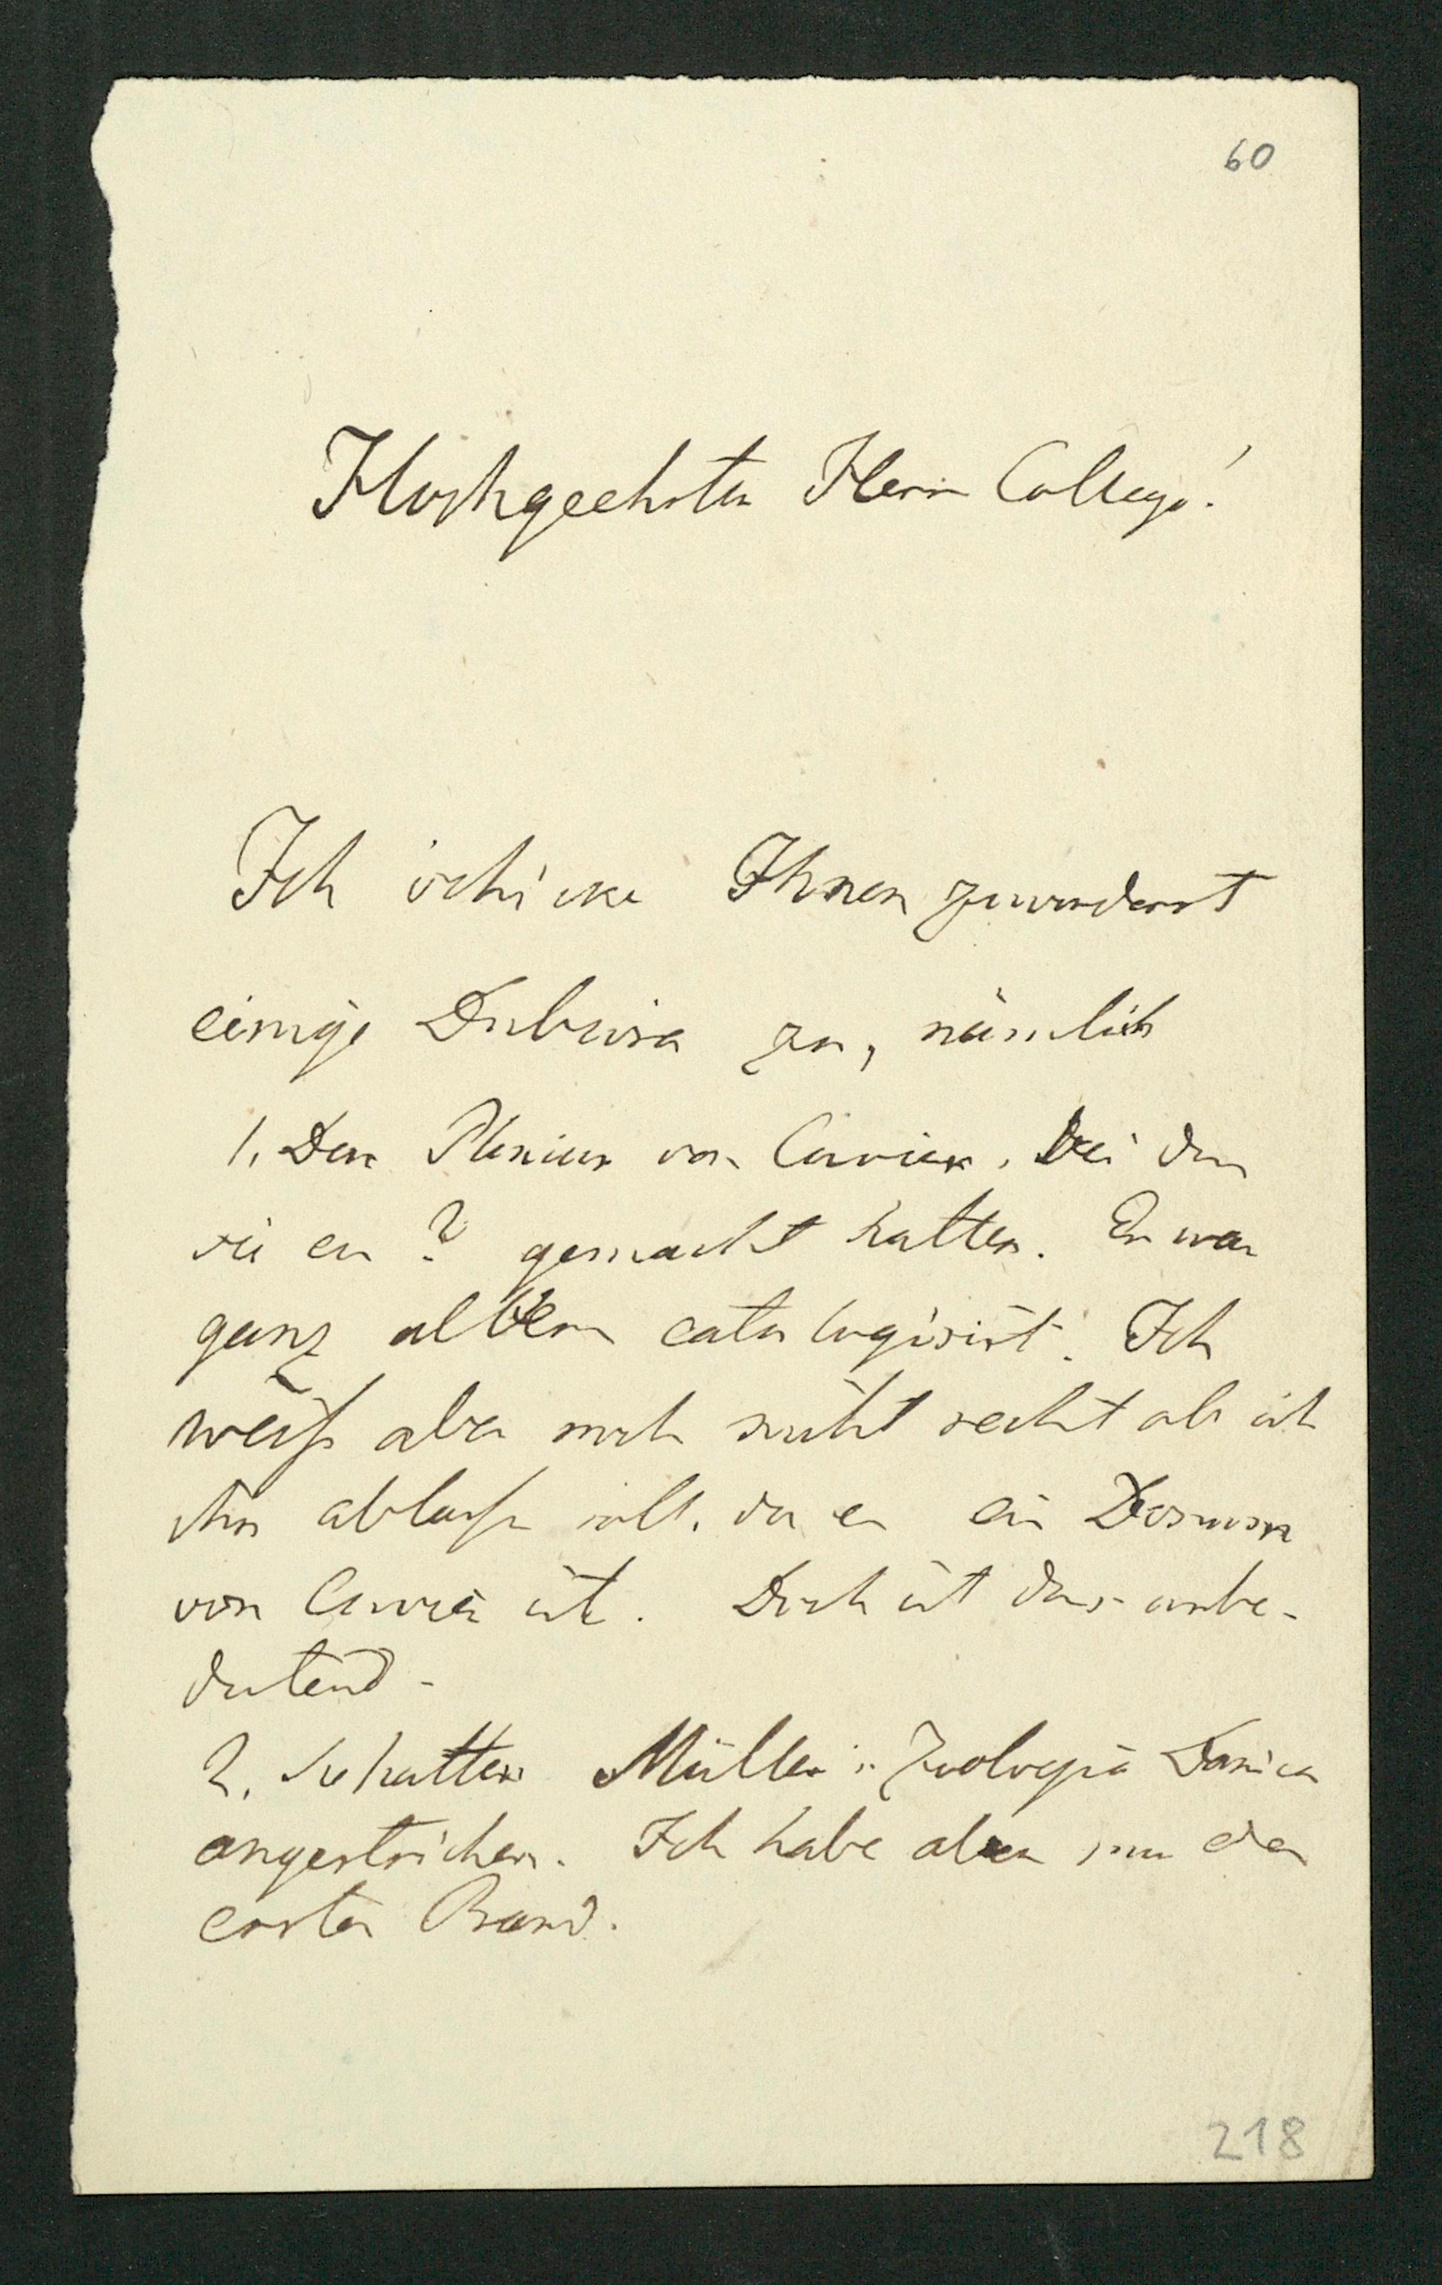 60
Hochgeehrter Herr College!
Ich schicke Ihnen zuvorderst
einige Dubiosa zu, nämlich
1. Den Plinius von Cuvier, bei dem
sie ein ? gemacht hatten. Er war
ganz albern catalogisirt. Ich
weiß aber noch nicht recht ob ich
ihn ablaße soll, da er ein
von Cuvier ist. Doch ist das unbe-
deutend.
2. Sie hatten Müller's Zoologia Danica
angestrichen. Ich habe aber nur den
ersten Band.
218